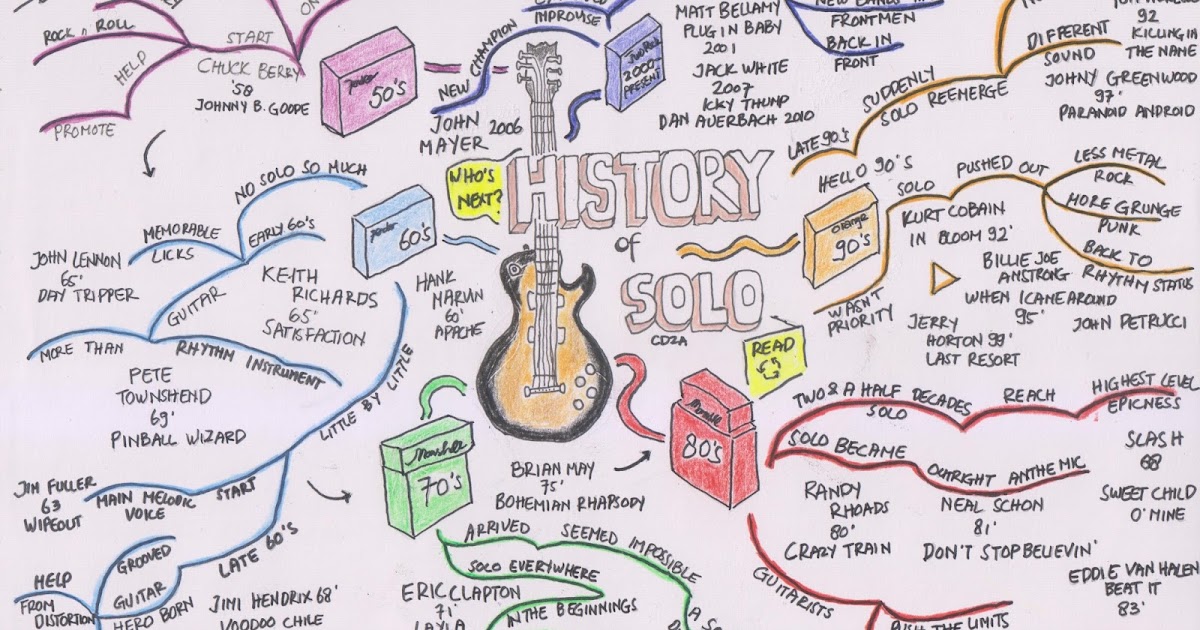 ROCK N ROLL
START
HELP
PROMOTE
CHUCK BERRY
'58
JOHNNY B. GOODE
50's
NEW CHAMPION
IMPROVISE
JOHN 2006
MAYER
2000-
PRESENT
MATT BELLAMY
PLUG IN BABY
2001
JACK WHITE
2007
ICKY THUMP
DAN AUERBACH 2010
FRONTMEN
BACK IN
FRONT
92
KILLING IN
THE NAME
DIFFERENT
SOUND
JOHNY GREENWOOD
97'
PARANOID ANDROID
SUDDENLY
SOLO REEMERGE
LATE 90's
HELLO 90's
WHO'S
NEXT?
HISTORY
of
SOLO
CDZA
READ
NO SOLO SO MUCH
MEMORABLE
LICKS
EARLY 60's
JOHN LENNON
65'
DAY TRIPPER
KEITH
RICHARDS
65'
SATISFACTION
GUITAR
MORE THAN
RHYTHM INSTRUMENT
PETE
TOWNSHEND
69'
PINBALL WIZARD
60's
HANK
MARVIN
60'
APACHE
LITTLE BY LITTLE
JIM FULLER
63
WIPEOUT
MAIN MELODIC
VOICE
START
LATE 60's
GROOVED
HELP
FROM
DISTORTION
GUITAR
HERO BORN
JIMI HENDRIX 68'
VOODOO CHILE
Orange
90's
SOLO
PUSHED OUT
LESS METAL
ROCK
MORE GRUNGE
PUNK
BACK TO
RHYTHM STATUS
KURT COBAIN
IN BLOOM 92'
BILLIE JOE
AMSTRONG
WHEN I CAME AROUND
95'
WASN'T
PRIORITY
JERRY
HORTON 99'
LAST RESORT
JOHN PETRUCCI
Marshall
70's
BRIAN MAY
75'
BOHEMIAN RHAPSODY
ARRIVED
SEEMED IMPOSSIBLE
SOLO EVERYWHERE
IN THE BEGINNINGS
ERIC CLAPTON
71'
LAYLA
80's
TWO & A HALF DECADES
SOLO
REACH
HIGHEST LEVEL
EPICNESS
SOLO BECAME
OUTRIGHT ANTHEMIC
SLASH
88
SWEET CHILD
O' MINE
RANDY
RHOADS
80'
CRAZY TRAIN
NEAL SCHON
81'
DON'T STOP BELIEVIN'
EDDIE VAN HALEN
BEAT IT
83'
GUITARISTS
PUSH THE LIMITS